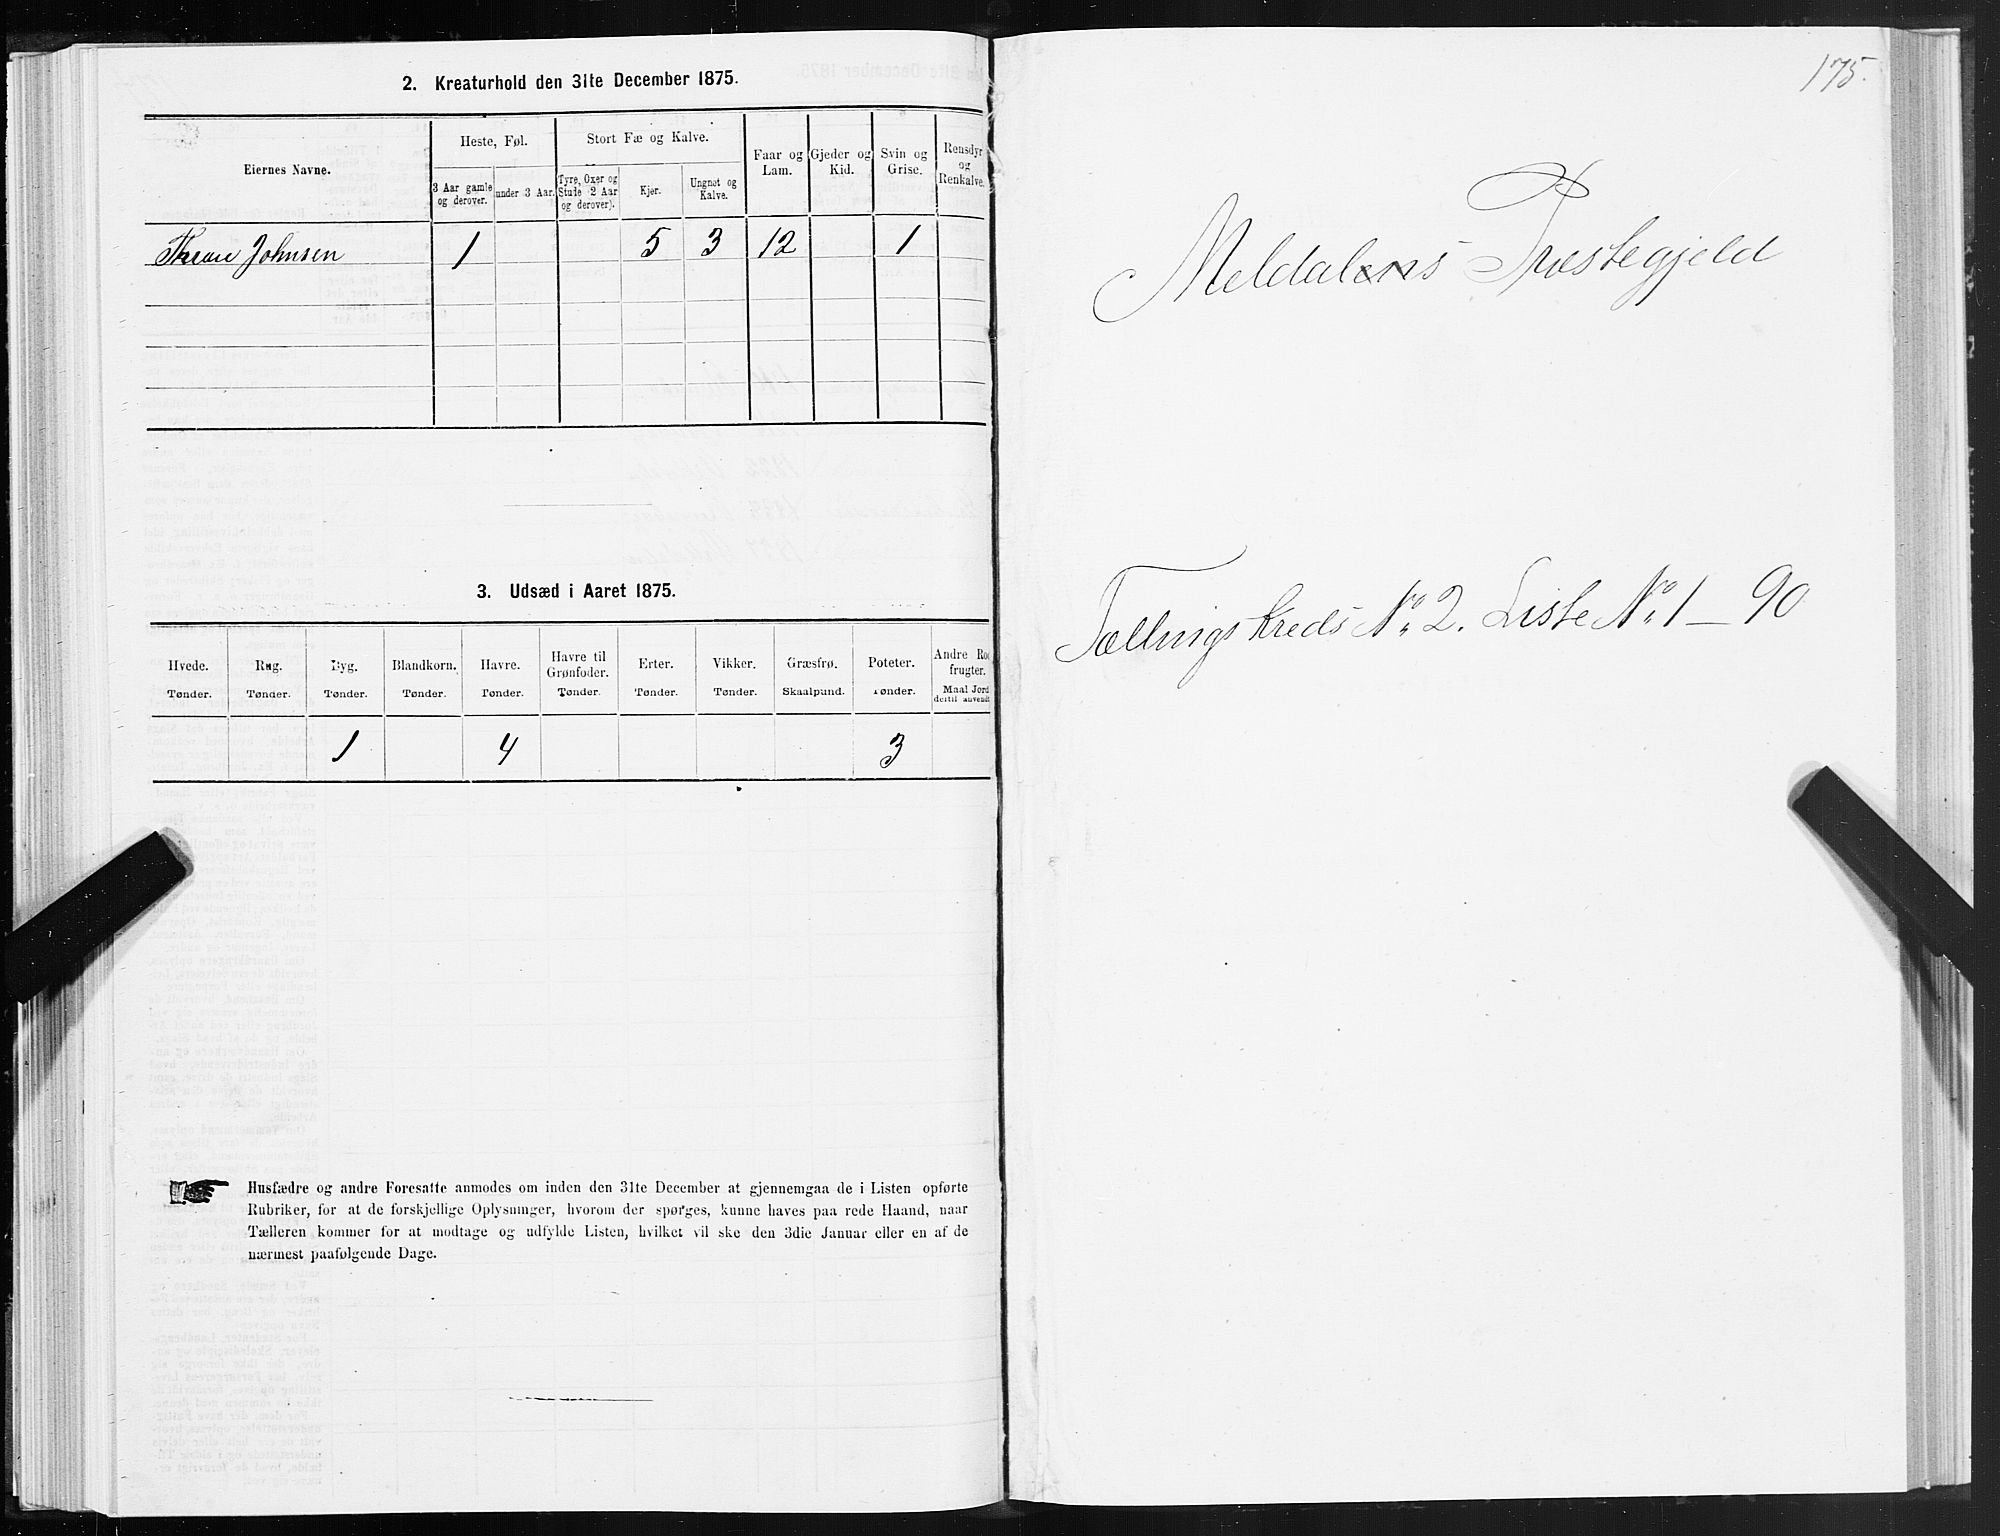 2. Kreaturhold den 31te December 1875.
Eiernes Navne.
Heste, Føl.
Stort Fæ og Kalve.
Faar og Lam.
Gjeder og Kid.
Svin og Grise.
Rensdyr og Renkalve.
3 Aar gamle og derover.
under 3 Aar.
Tyre, Oxer og Stude (2 Aar og derover).
Kjør.
Ungnøt og Kalve.
Johnsen 1 5 3 12 1
3. Udsæd i Aaret 1875.
Hvede. Rug. Byg. Blandkorn. Havre. Havre til Grønfoder. Erter. Vikker. Græsfrø. Poteter. Andre Rod frugter.
Tønder. Tønder. Tønder. Tønder. Tønder. Tønder. Tønder. Tønder. Skaalpund. Tønder. Maal Jord dertil anvendt
1 4 3
Husfædre og andre Foresatte anmodes om inden den 31te December at gjennemgaa de i Listen opførte
Rubriker, for at de forskjellige Oplysninger, hvorom der spørges, kunne haves paa rede Haand, naar
Tælleren kommer for at modtage og udfylde Listen, hvilket vil ske den 3die Januar eller en af de
nærmest paafølgende Dage.
175.
Meldalens Præstegjeld
Tællingskreds No. 2. Liste No. 1 – 90